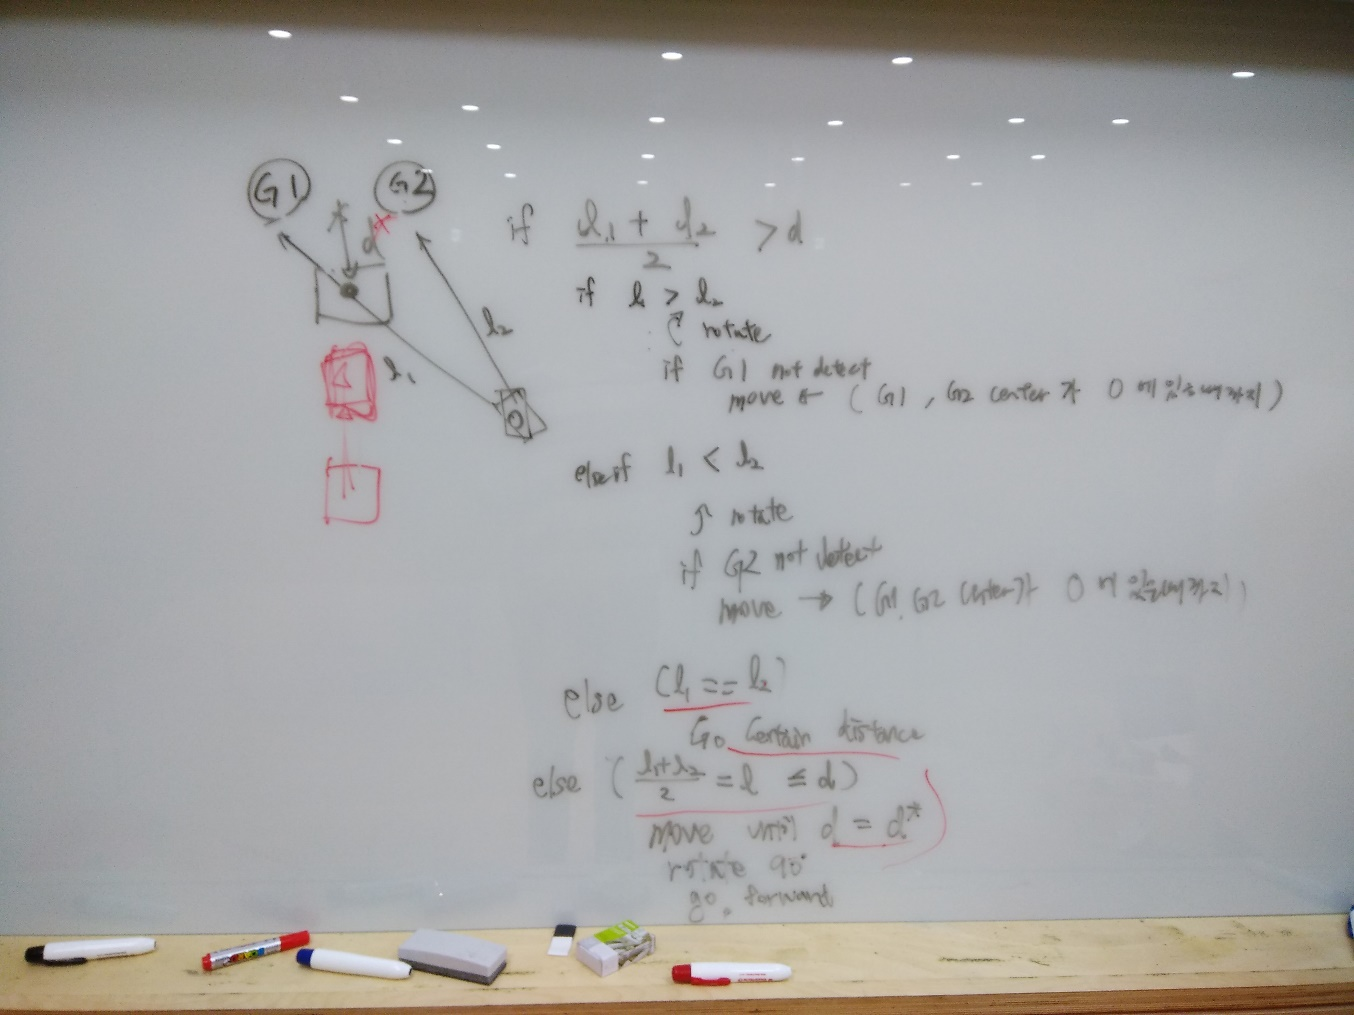 G1
G2
d
l₂
l₁
if (l₁ + l₂)/2 > d
if l₁ > l₂
rotate
if G1 not detect
move ← (G1, G2 center가 0에 있을때까지)
else if l₁ < l₂
rotate
if G2 not detect
move → (G1, G2 center가 0에 있을때까지)
else (l₁ == l₂)
Go certain distance
else ((l₁+l₂)/2 = l ≤ d)
move until d = d*
rotate 90°
go forward